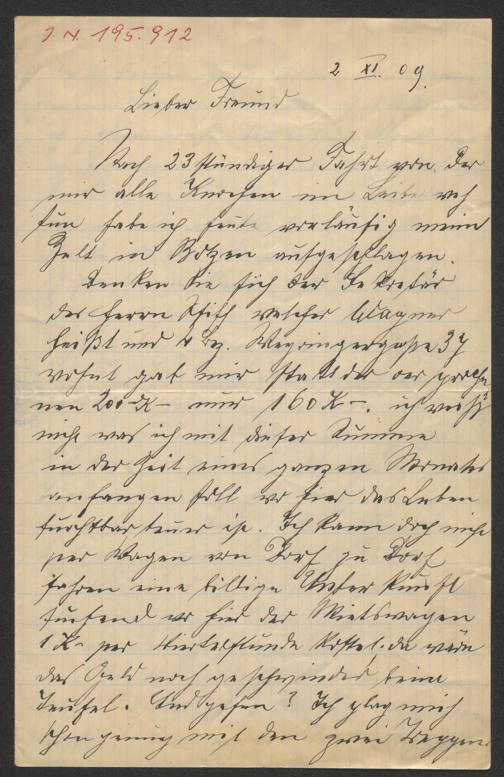 J. N. 195.912
2 XI. 09.
Lieber Freund
Nach 23 stündiger Fahrt von der
mir alle Knochen im Leibe weh
tun habe ich heute vorläufig mein
Zelt in Botzen aufgeschlagen.
Denken Sie sich der Sekretär
des Herrn welcher Wagner
heißt und 4 Bez. Weyringergasse 37
wohnt gab mir statt der versproche
nen 200 K– nur 160 K–. ich weiß
nicht was ich mit dieser Summe
in der Zeit eines ganzen Monates
anfangen soll wo hier das Leben
furchtbar teuer ist. Ich kann doch nicht
per Wagen von Dorf zu Dorf
fahren eine billige Unterkunft
suchend wo hier der Mietswagen
1 K– per Viertelstunde kostet. da wäre
das Geld noch geschwinder beim
Teufel. Und gehen? Ich plag mich
schon genug mit den zwei Treppen